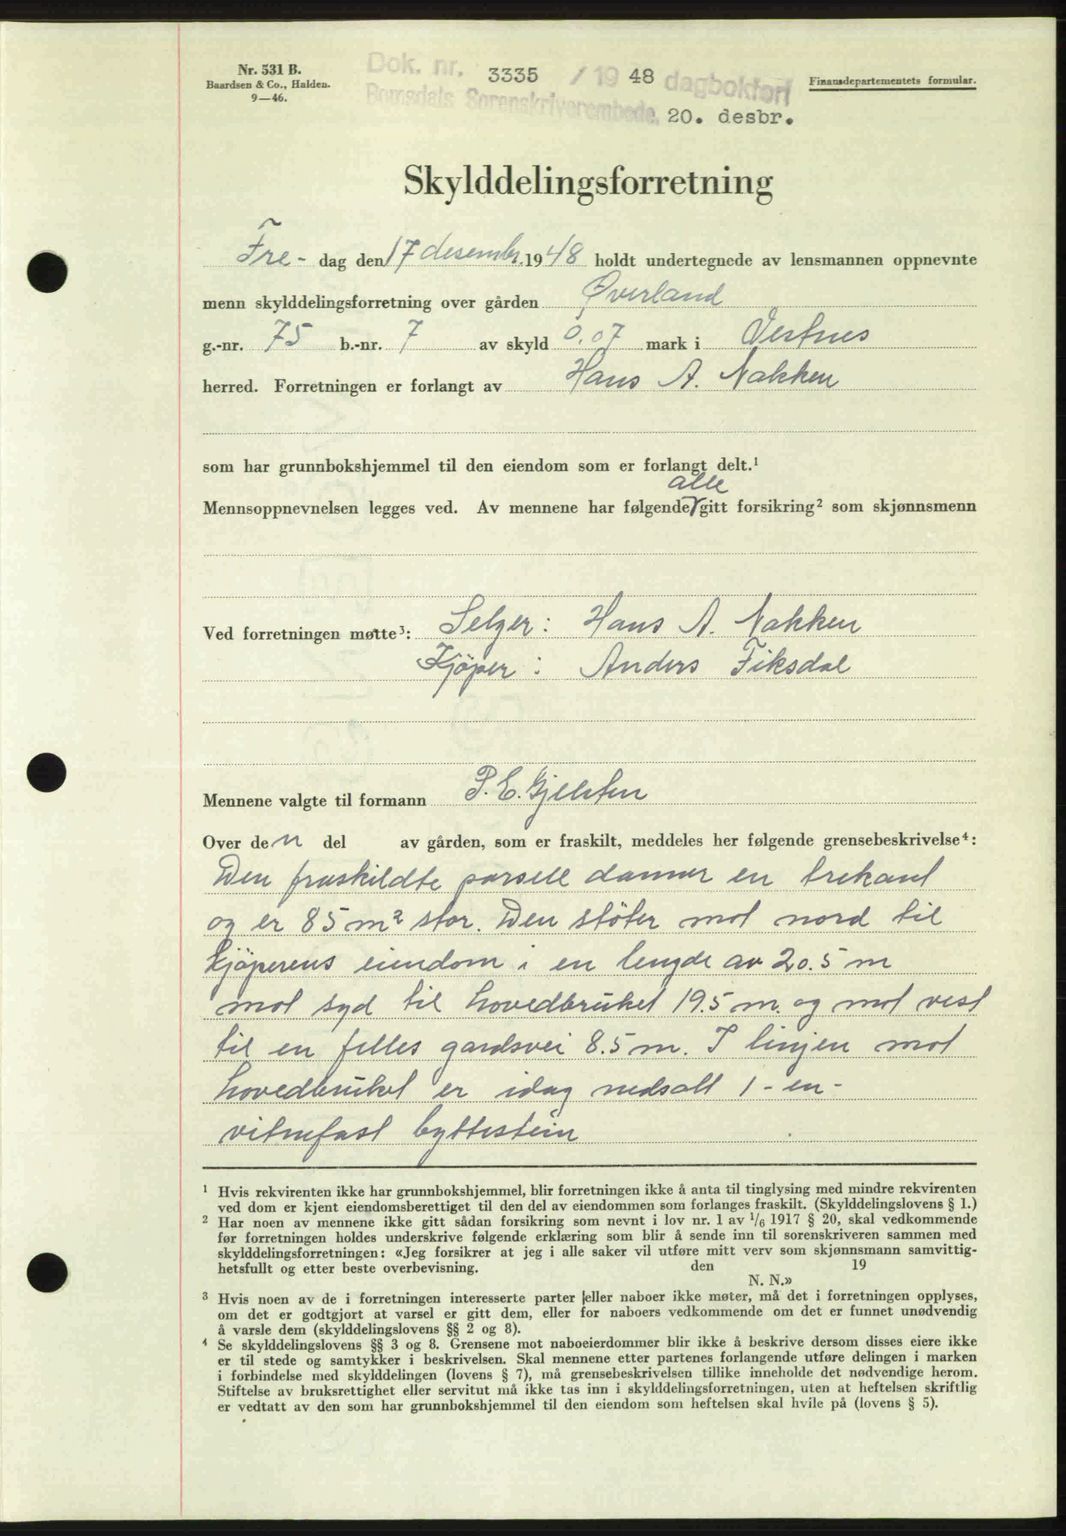 Nr. 531 B.
Baardsen & Co., Halden.
9—46.
Dok. nr. 3335 / 19 48 dagbokført
Romsdals Sorenskriverembede, 20. desbr.
Finansdepartementets formular.
Skylddelingsforretning
Fre- dag den 17 desembr. 1948 holdt undertegnede av lensmannen oppnevnte
menn skylddelingsforretning over gården Øverland
g.-nr. 75 b.-nr. 7 av skyld 0.07 mark i Vestnes
herred. Forretningen er forlangt av Hans A. Nakken
som har grunnbokshjemmel til den eiendom som er forlangt delt.¹
alle
Mennsoppnevnelsen legges ved. Av mennene har følgende gitt forsikring² som skjønnsmenn
Ved forretningen møtte³: Selger: Hans A. Nakken
Kjöper: Anders Fiksdal
Mennene valgte til formann P. E. Gjelsten
Over den del av gården, som er fraskilt, meddeles her følgende grensebeskrivelse⁴:
Den fraskildte parsell danner en trekant
og er 85 m² stor. Den stöter mot nord til
kjöperens eiendom i en lengde av 20.5 m
mot syd til hovedbruket 19.5 m. og mot vest
til en felles gardsvei 8.5 m. I linjen mot
hovedbruket er idag nedsatt 1-en-
vitnefast byttestein
¹ Hvis rekvirenten ikke har grunnbokshjemmel, blir forretningen ikke å anta til tinglysing med mindre rekvirenten
ved dom er kjent eiendomsberettiget til den del av eiendommen som forlanges fraskilt. (Skylddelingslovens § 1.)
² Har noen av mennene ikke gitt sådan forsikring som nevnt i lov nr. 1 av 1/6 1917 § 20, skal vedkommende
før forretningen holdes underskrive følgende erklæring som blir å sende inn til sorenskriveren sammen med
skylddelingsforretningen: «Jeg forsikrer at jeg i alle saker vil utføre mitt verv som skjønnsmann samvittig-
hetsfullt og etter beste overbevisning. den 19
N. N.»
³ Hvis noen av de i forretningen interesserte parter eller naboer ikke møter, må det i forretningen opplyses,
om det er godtgjort at varsel er gitt dem, eller for naboers vedkommende om det er funnet unødvendig
å varsle dem (skylddelingslovens §§ 2 og 8).
⁴ Se skylddelingslovens §§ 3 og 8. Grensene mot naboeierdommer blir ikke å beskrive dersom disses eiere ikke
er til stede og samtykker i beskrivelsen. Skal mennene etter partenes forlangende utføre delingen i marken
i forbindelse med skylddelingen (lovens § 7), må grensebeskrivelsen tillike inneholde det nødvendige herom.
Stiftelse av bruksrettighet eller servitut må ikke tas inn i skylddelingsforretningen, uten at heftelsen skriftlig
er vedtatt av den som har grunnbokshjemmel til den eiendom som heftelsen skal hvile på (lovens § 5).